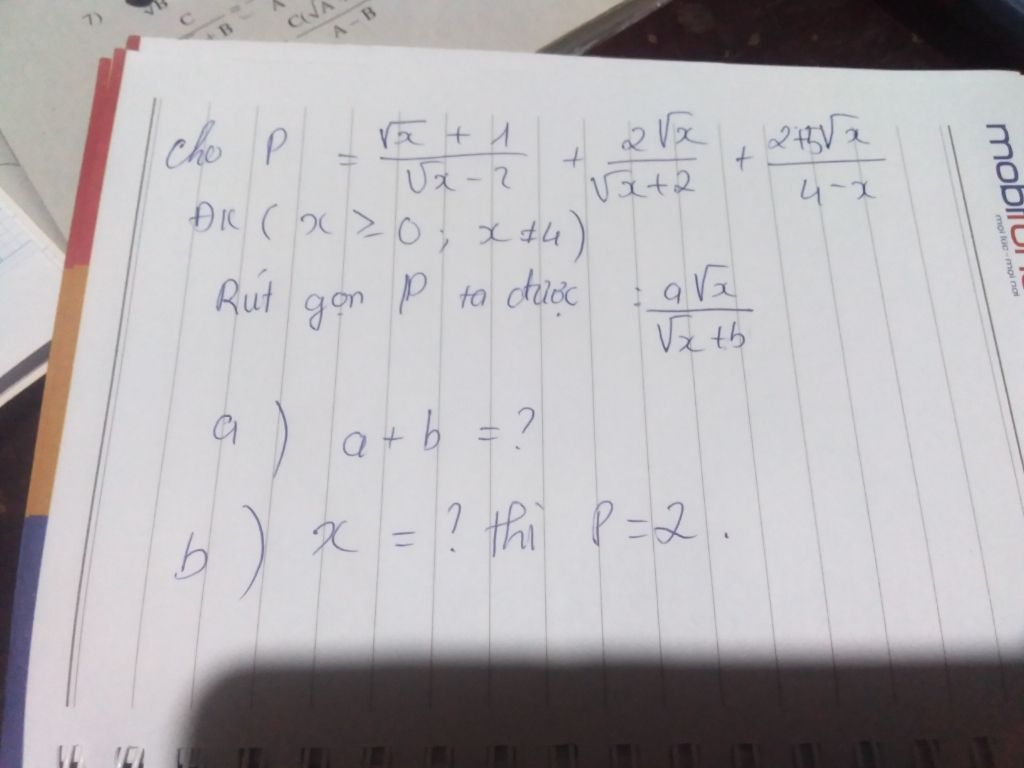 7)
C
C(√A
A - B
cho P = \frac{√x + 1}{√x - 2} + \frac{2√x}{√x + 2} + \frac{2+5√x}{4 - x}
ĐK ( x ≥ 0 ; x ≠ 4 )
Rút gọn P ta được : \frac{a√x}{√x + b}
a ) a + b = ?
b ) x = ? thì P = 2 .
mọi lúc - mọi nơi